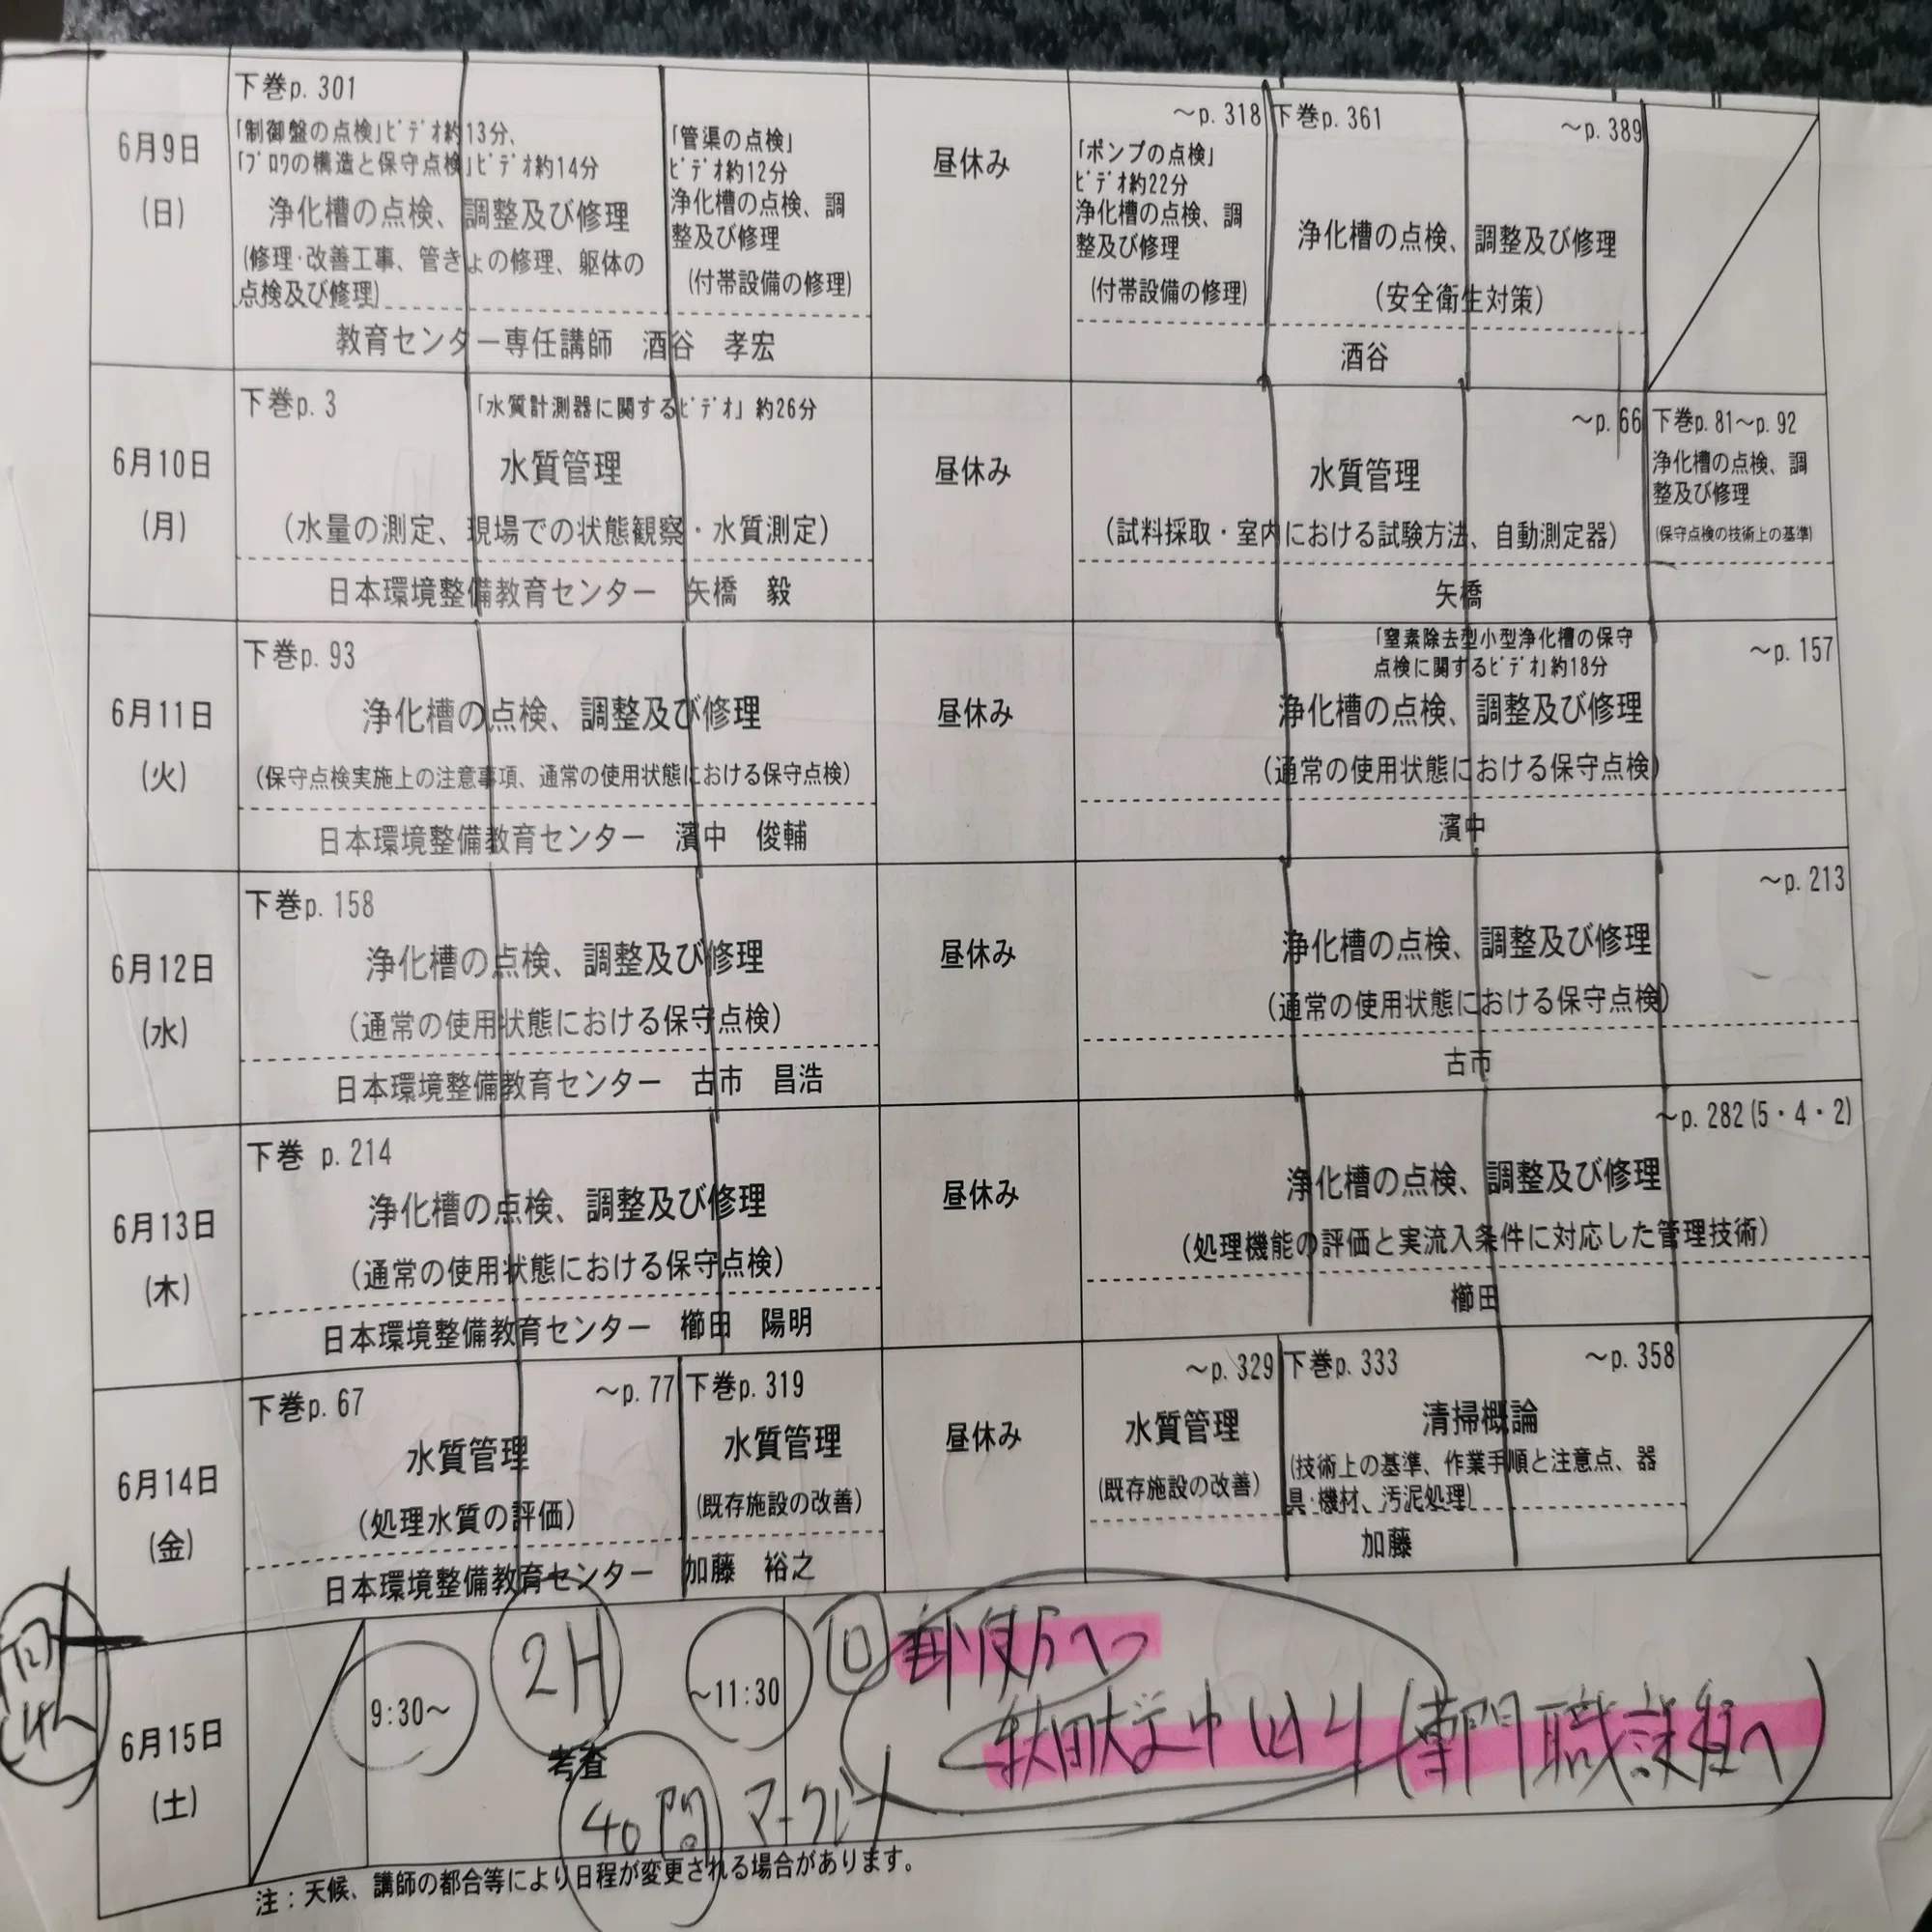 6月9日
(日)
下巻p. 301
「制御盤の点検」ﾋﾞﾃﾞｵ約13分、
「ﾌﾞﾛﾜの構造と保守点検」ﾋﾞﾃﾞｵ約14分
浄化槽の点検、調整及び修理
(修理・改善工事、管きょの修理、躯体の
点検及び修理)
「管渠の点検」
ﾋﾞﾃﾞｵ約12分
浄化槽の点検、調
整及び修理
(付帯設備の修理)
教育センター専任講師 酒谷 孝宏
昼休み
～p. 318
「ポンプの点検」
ﾋﾞﾃﾞｵ約22分
浄化槽の点検、調
整及び修理
(付帯設備の修理)
下巻p. 361
～p. 389
浄化槽の点検、調整及び修理
(安全衛生対策)
酒谷
6月10日
(月)
下巻p. 3
「水質計測器に関するﾋﾞﾃﾞｵ」約26分
水質管理
(水量の測定、現場での状態観察・水質測定)
日本環境整備教育センター 矢橋 毅
昼休み
～p. 66
水質管理
(試料採取・室内における試験方法、自動測定器)
下巻p. 81～p. 92
浄化槽の点検、調
整及び修理
(保守点検の技術上の基準)
矢橋
6月11日
(火)
下巻p. 93
浄化槽の点検、調整及び修理
(保守点検実施上の注意事項、通常の使用状態における保守点検)
日本環境整備教育センター 濱中 俊輔
昼休み
「窒素除去型小型浄化槽の保守
点検に関するﾋﾞﾃﾞｵ」約18分
～p. 157
浄化槽の点検、調整及び修理
(通常の使用状態における保守点検)
濱中
6月12日
(水)
下巻p. 158
浄化槽の点検、調整及び修理
(通常の使用状態における保守点検)
日本環境整備教育センター 古市 昌浩
昼休み
～p. 213
浄化槽の点検、調整及び修理
(通常の使用状態における保守点検)
古市
6月13日
(木)
下巻 p. 214
浄化槽の点検、調整及び修理
(通常の使用状態における保守点検)
日本環境整備教育センター 櫛田 陽明
昼休み
～p. 282(5・4・2)
浄化槽の点検、調整及び修理
(処理機能の評価と実流入条件に対応した管理技術)
櫛田
6月14日
(金)
下巻p. 67
～p. 77
水質管理
(処理水質の評価)
下巻p. 319
水質管理
(既存施設の改善)
日本環境整備教育センター 加藤 裕之
昼休み
～p. 329
水質管理
(既存施設の改善)
下巻p. 333
～p. 358
清掃概論
(技術上の基準、作業手順と注意点、器
具・機材、汚泥処理)
加藤
6月15日
(土)
9:30～
2H
～11:30
考査
40問 マークシ
(専門職課程へ)
注：天候、講師の都合等により日程が変更される場合があります。